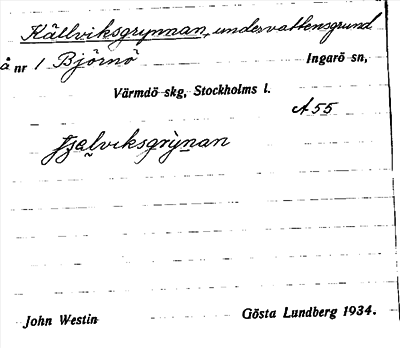 Källviksgrynnan, undervattensgrund
å nr 1 Björnö Ingarö sn,
Värmdö skg, Stockholms l.
A 55
John Westin Gösta Lundberg 1934.